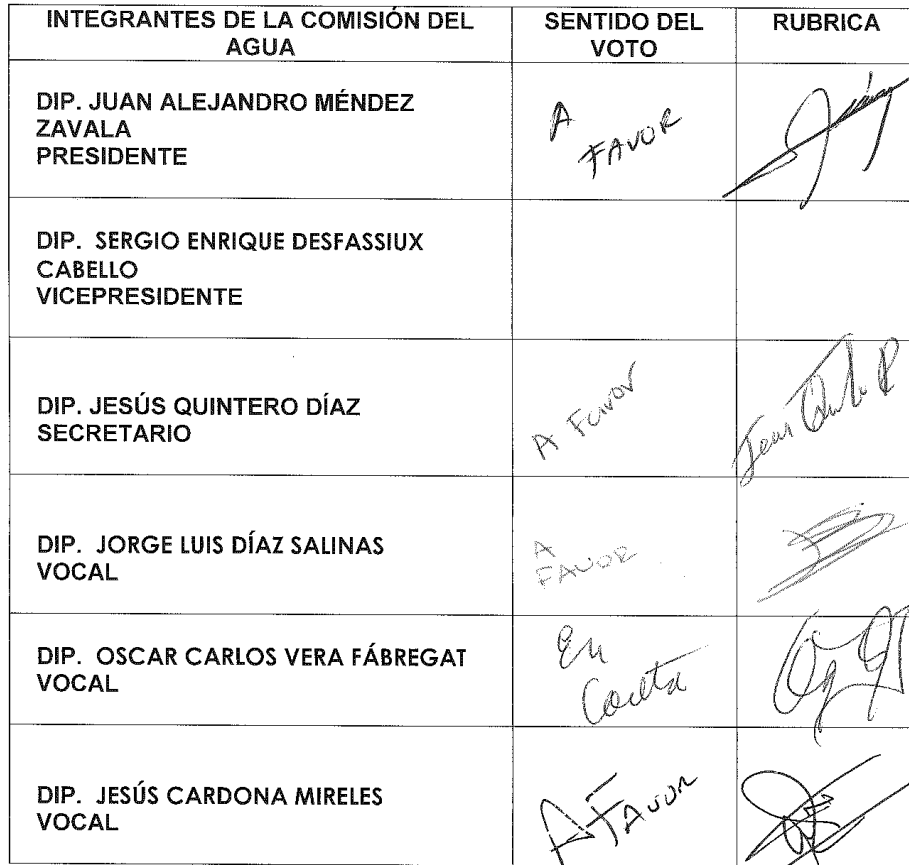 INTEGRANTES DE LA COMISIÓN DEL
AGUA
SENTIDO DEL
VOTO
RUBRICA
DIP. JUAN ALEJANDRO MÉNDEZ
ZAVALA
PRESIDENTE
A
FAVOR
DIP. SERGIO ENRIQUE DESFASSIUX
CABELLO
VICEPRESIDENTE
DIP. JESÚS QUINTERO DÍAZ
SECRETARIO
A Favor
DIP. JORGE LUIS DÍAZ SALINAS
VOCAL
A
FAVOR
DIP. OSCAR CARLOS VERA FÁBREGAT
VOCAL
En
DIP. JESÚS CARDONA MIRELES
VOCAL
A FAVOR